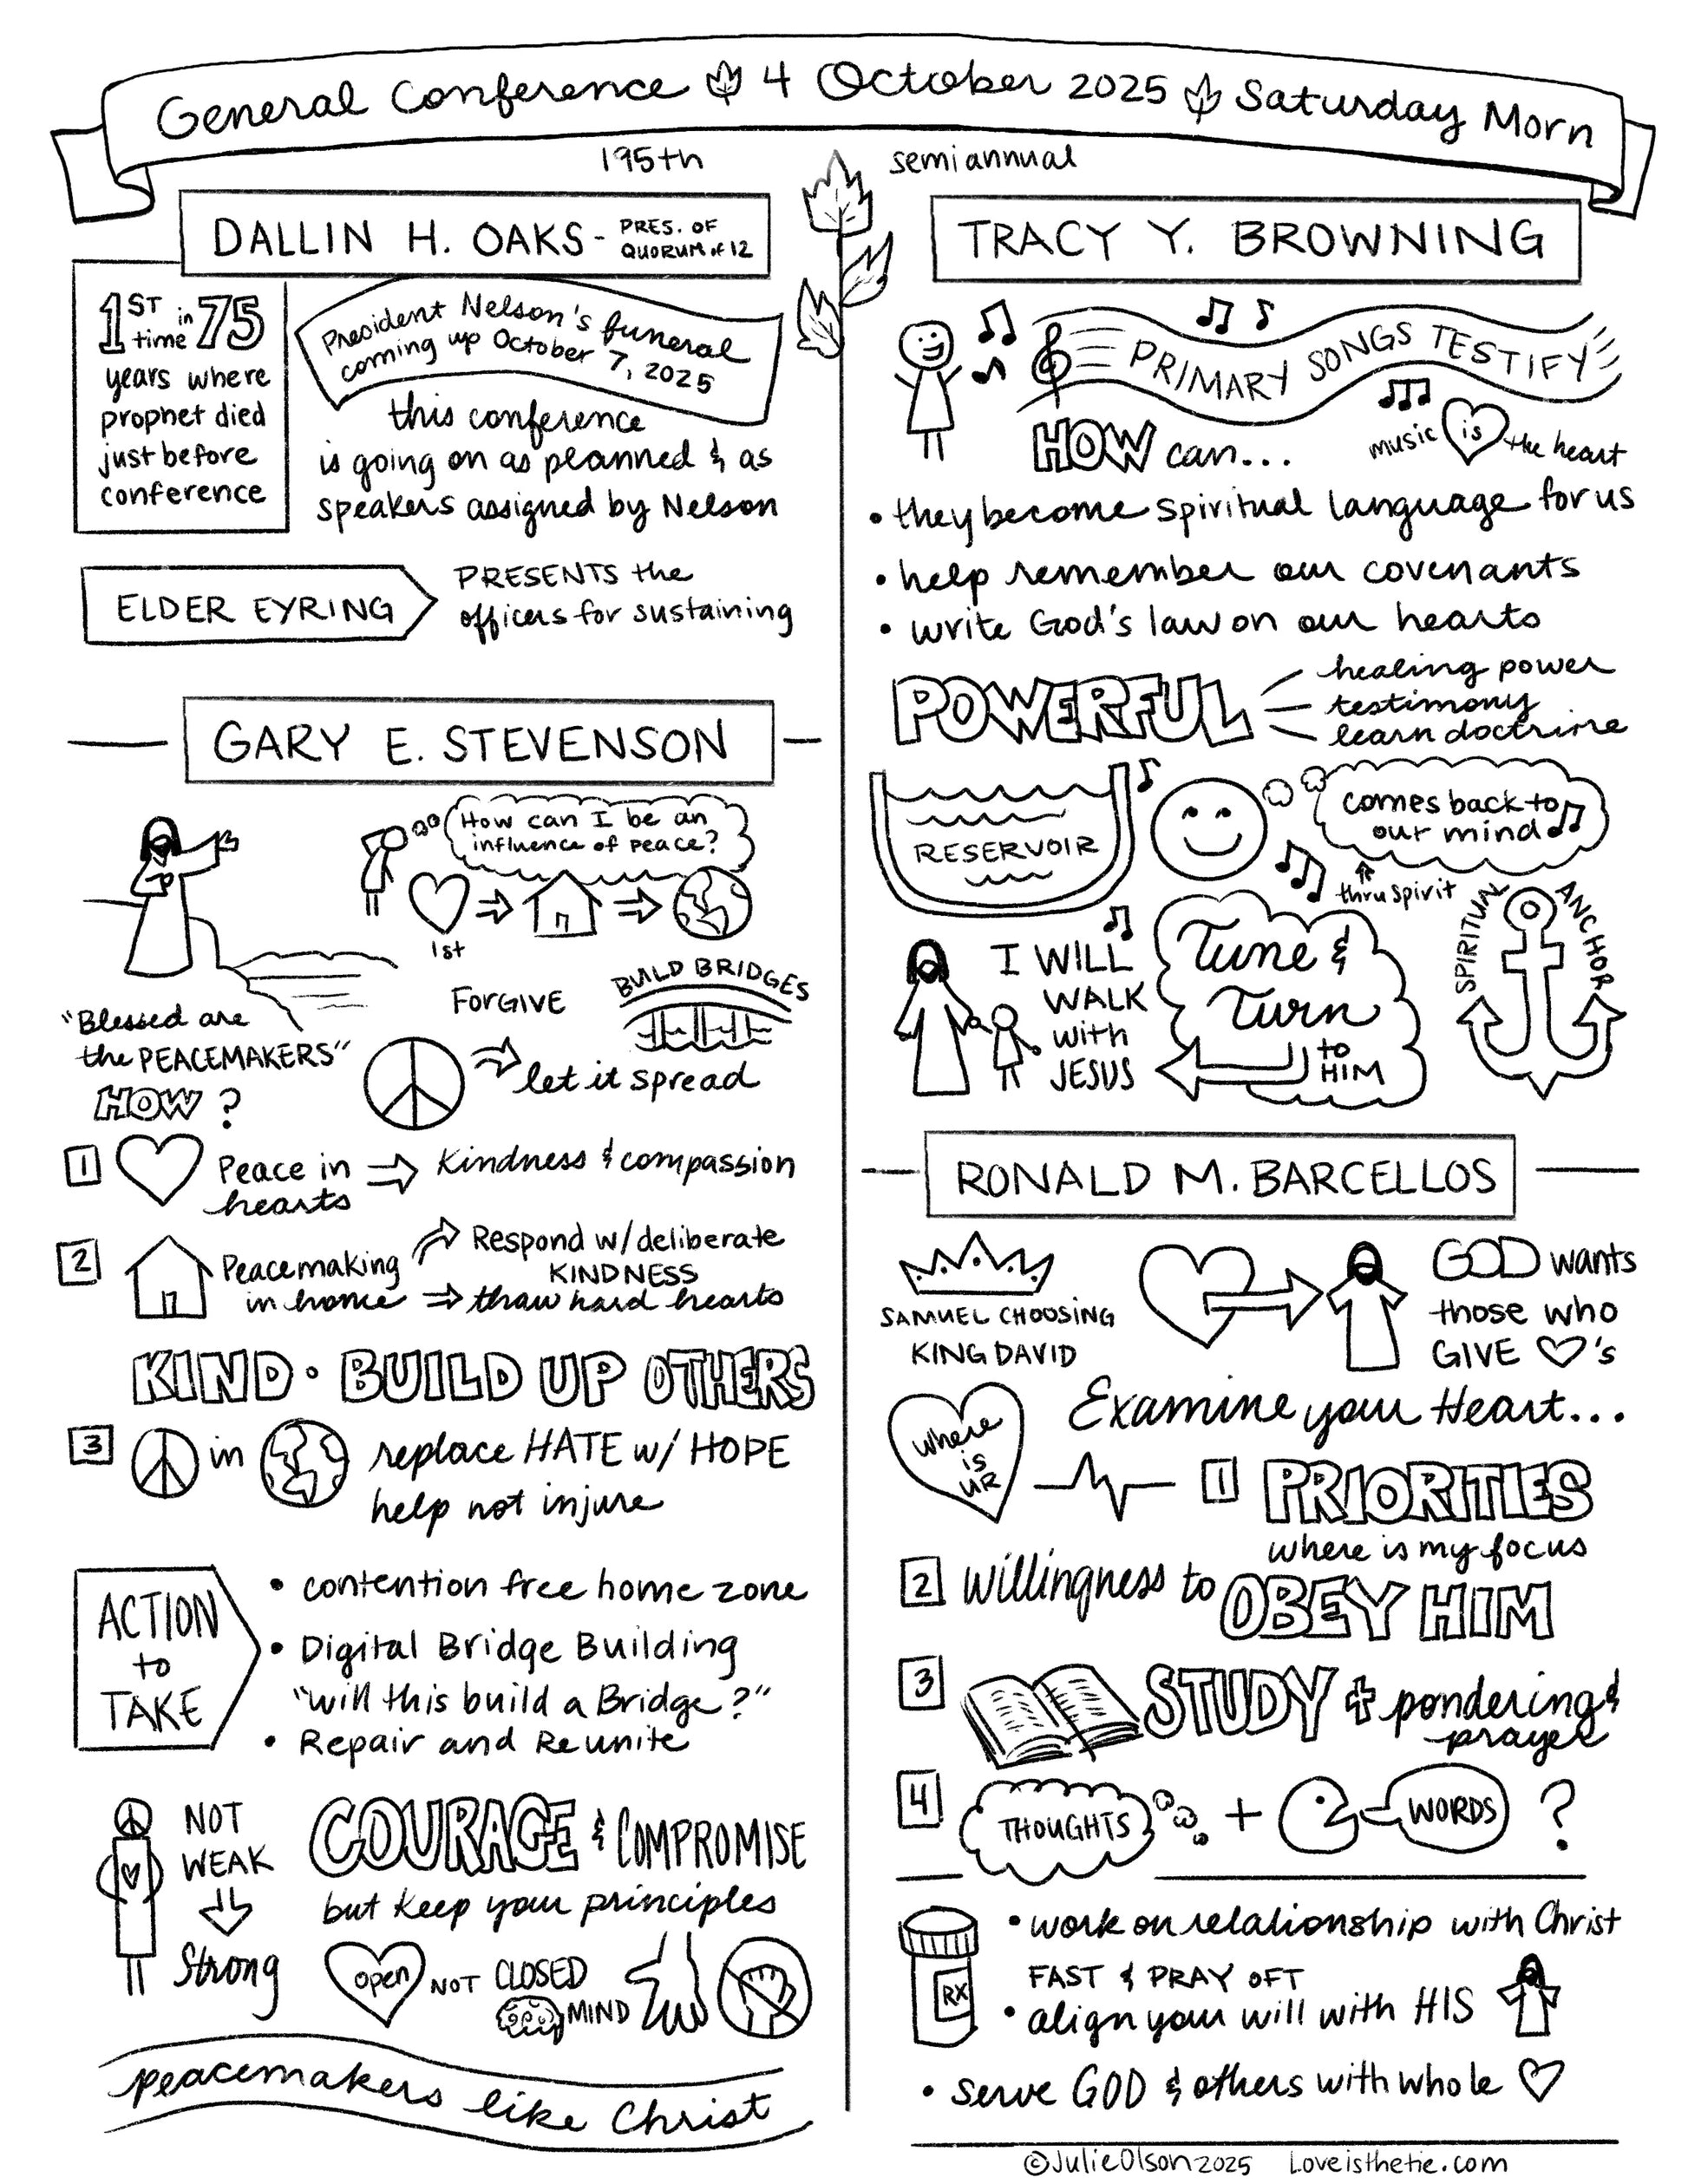 General Conference 4 October 2025 Saturday Morn
195th semiannual
DALLIN H. OAKS - PRES. OF
QUORUM of 12
1ST in 75
time
years where
prophet died
just before
conference
President Nelson's funeral
coming up October 7, 2025
this conference
is going on as planned & as
speakers assigned by Nelson
ELDER EYRING
PRESENTS the
officers for sustaining
GARY E. STEVENSON
How can I be an
influence of peace?
1st
"Blessed are
the PEACEMAKERS"
HOW?
FORGIVE
BUILD BRIDGES
let it spread
1 Peace in
hearts
Kindness & compassion
2 Peacemaking
in home
Respond w/deliberate
KINDNESS
thaw hard hearts
KIND · BUILD UP OTHERS
3 in replace HATE w/ HOPE
help not injure
ACTION
to
TAKE
• contention free home zone
• Digital Bridge Building
"will this build a Bridge?"
• Repair and Reunite
NOT
WEAK
Strong
COURAGE & COMPROMISE
but keep your principles
open NOT CLOSED
MIND
peacemakers like Christ
TRACY Y. BROWNING
PRIMARY SONGS TESTIFY
HOW can...
music is the heart
• they become spiritual language for us
• help remember our covenants
• write God's law on our hearts
POWERFUL
healing power
testimony
learn doctrine
RESERVOIR
comes back to
our mind
thru spirit
I WILL
WALK
with
JESUS
Tune &
Turn
to
HIM
SPIRITUAL ANCHOR
RONALD M. BARCELLOS
SAMUEL CHOOSING
KING DAVID
GOD wants
those who
GIVE ♡'s
Examine your Heart...
where
is
UR
1 PRIORITIES
where is my focus
2 willingness to OBEY HIM
3 STUDY + pondering &
prayer
4 THOUGHTS + WORDS ?
RX
• work on relationship with Christ
FAST & PRAY OFT
• align your will with HIS
• serve GOD & others with whole ♡
©JulieOlson2025 Loveisthetie.com